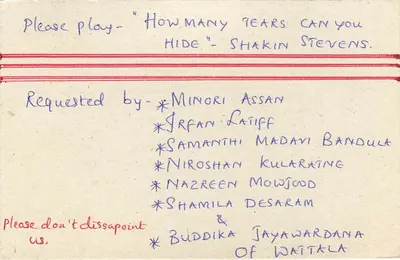 Please play - "HOW MANY TEARS CAN YOU
HIDE" - SHAKIN STEVENS.
Requested by - * MINORI ASSAN
* IRFAN LATIFF
* SAMANTHI MADAVI BANDULA
* NIROSHAN KULARATNE
* NAZREEN MOWJOOD
* SHAMILA DESARAM
&
* BUDDIKA JAYAWARDANA
OF WATTALA
Please don't dissapoint
us.